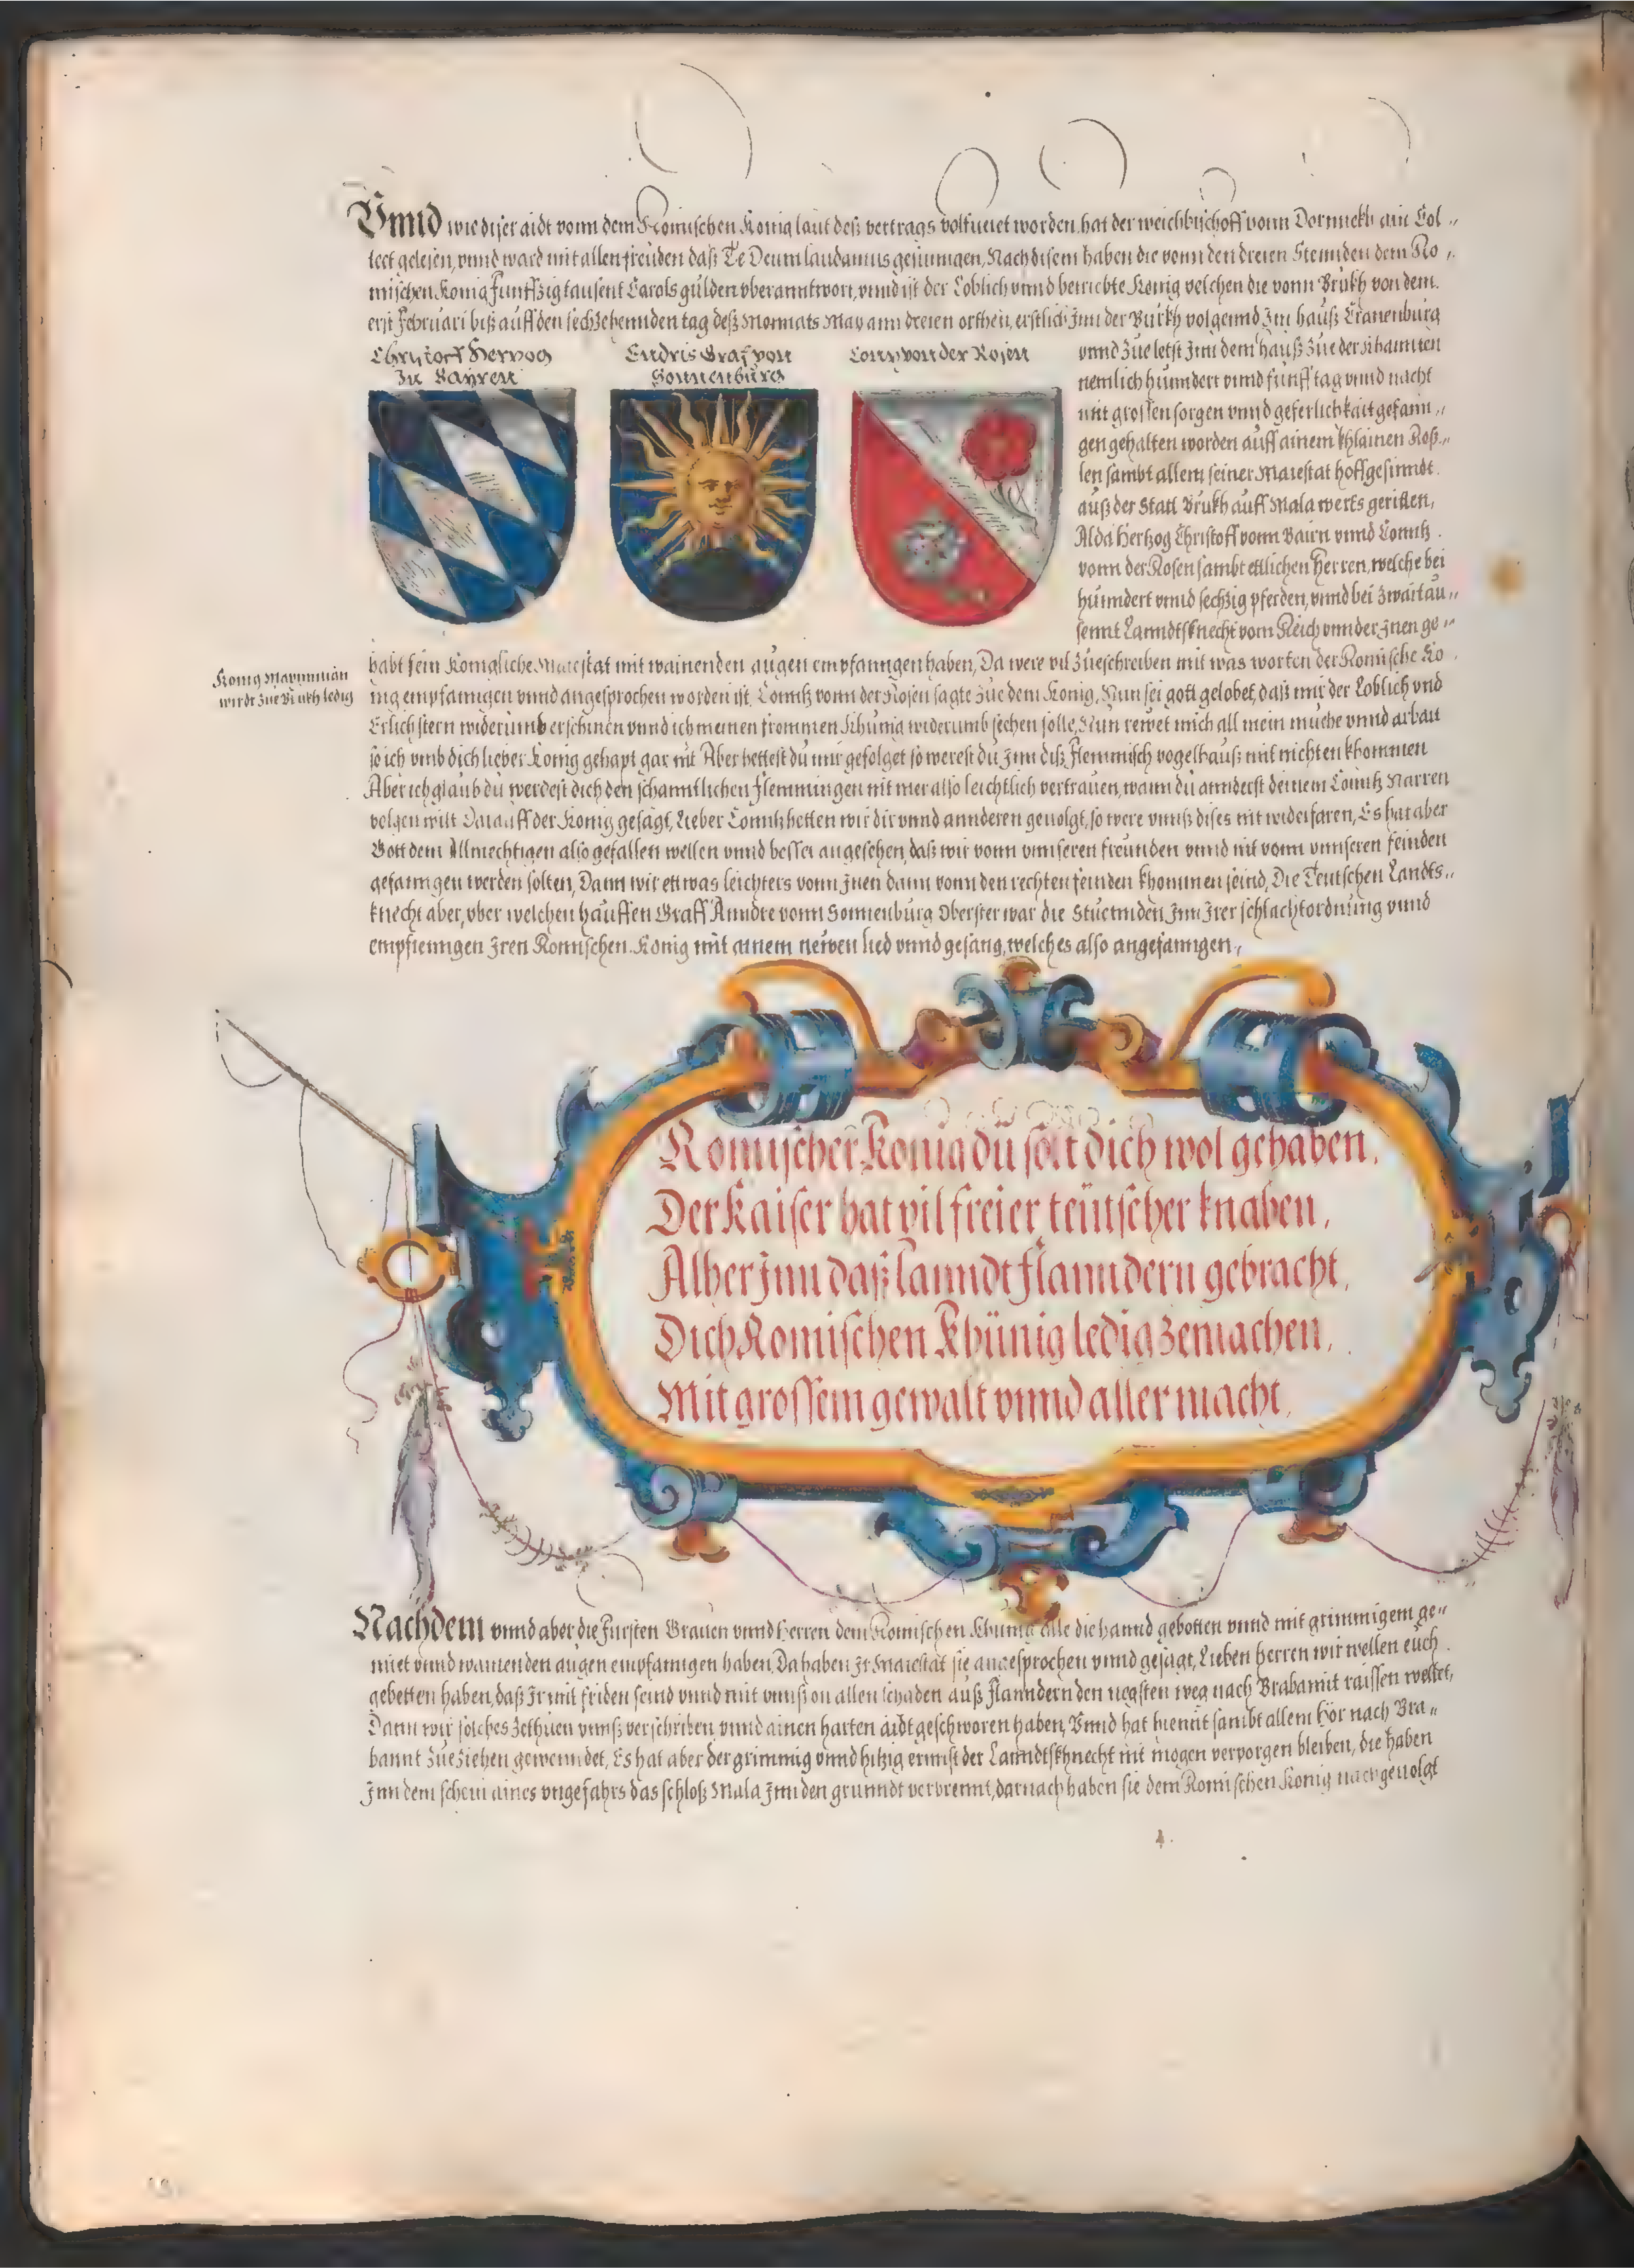 Vnnd wie diser aidt vonn dem Romischen Konig laut deß vertrags volfueret worden, hat der weichbischoff vonn Dornnekh ain Col-
lect gelesen, vnnd ward mit allen freuden daß Te Deum laudamus gesungen, Nach disem haben die vonn den dreien Stennden dem Ro-
mischen Konig funffzig tausent Carols gulden vberanntwort, vnnd ist der Loblich vnnd betriebte Konig welchen die vonn Brukh von dem
erst Februari biß auff den sechzehennden tag deß Monnats May ann dreien orthen, erstlich Jnn der Burkh volgennd Jm hauß Cranenburg
Christoff Hertzog
Zu Bayren
Endris Graf von
Sonnenburg
Contz von der Rosen
vnnd zue letst Jnn dem hauß zue der Khannten
nemlich hunndert vnnd funff tag vnnd nacht
mit grossen sorgen vnnd geferlichkait gefann-
gen gehalten worden auff ainem khlainen Roß-
len sambt allem seiner Maiestat hoffgesinndt
auß der Statt Brukh auff Mala werts geritten,
Alda Hertzog Christoff vonn Bairn vnnd Conntz
vonn der Rosen sambt ettlichen Herren, welche bei
hunndert vnnd sechzig pferden, vnnd bei zwaitau-
sennt Lanndtsknecht vom Reich vnnder Jnen ge-
habt sein Konigliche Maiestat mit wainenden augen empfanngen haben, Da were vil zueschreiben mit was worten der Romische Ko
Konig Maximilian
wirdt zue Brukh ledig
nig empfanngen vnnd angesprochen worden ist. Conntz vonn der Rosen sagte zue dem Konig, Nun sei gott gelobet, daß mir der Loblich vnd
Erlich stern widerumb erschinen vnnd ich meinen frommen Khunig widerumb sechen solle, Nun rewet mich all mein muehe vnnd arbait
so ich vmb dich lieber Konig gehapt gar nit Aber hettest du mir gefolget so werest du Jnn diß Flemmisch vogelhauß mit nichten khommen
Aber ich glaub du werdest dich den schanntlichen Flemmingen nit mer also leichtlich vertrauen, wann du annderst deinem Conntz Narren
volgen wilt Darauff der Konig gesagt, Lieber Conntz hetten wir dir vnnd annderen geuolgt, so were vnnß dises nit widerfaren, Es hat aber
Gott dem Allmechtigen also gefallen wellen vnnd besser angesehen, daß wir vonn vnnseren freunden vnnd nit vonn vnnseren feinden
gefanngen werden solten, Dann wir ettwas leichters vonn Jnen dann vonn den rechten feinden khommen seind, Die Teutschen Landts-
knecht aber, vber welchen hauffen Graff Anndre vonn Sonnenburg Oberster war die Stuennden Jnn Jrer schlachtordnung vnnd
empfienngen Jren Romischen Konig mit ainem newen lied vnnd gesang, welches also angefanngen,
Romischer Konig du solt dich wol gehaben,
Der Kaiser hat vil freier teütscher knaben,
Alher Jnn daß Lanndt Flanndern gebracht,
Dich Romischen Khünig ledig zemachen,
Mit grossem gewalt vnnd aller macht,
Nachdem vnnd aber die Fursten Grauen vnnd Herren dem Romischen Khunig alle die hannd gebotten vnnd mit grimmigem ge-
müet vnnd wainenden augen empfanngen haben, Da haben Jr Maiestat sie angesprochen vnnd gesagt, Lieben Herren wir wellen euch
gebetten haben, daß Jr mit friden seind vnnd mit vnnß on allen schaden auß Flanndern den negsten weg nach Brabannt raissen wellet,
Dann wir solches zethuen vnnß verschriben vnnd ainen harten aidt geschworen haben, Vnnd hat hiemit sambt allem hör nach Bra-
bannt zueziehen gewenndet, Es hat aber der grimmig vnnd hitzig ernnst der Lanndtskhnecht nit mogen verporgen bleiben, die haben
Jnn dem schein aines vngefahrs das schloß Mala Jnn den grunndt verbrennt, darnach haben sie dem Romischen Konig nachgeuolgt
4.